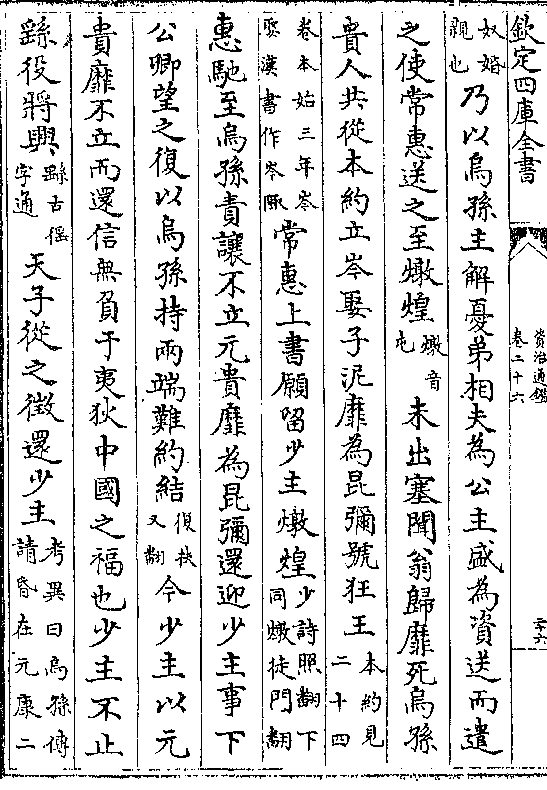 欽定四庫全書
資治通鑑
卷二十六
二十六
奴婚
親也
乃以烏孫主解憂弟相夫為公主盛為資送而遣
之使常惠送之至燉煌
燉音
屯
未出塞聞翁歸靡死烏孫
貴人共從本約立岑娶子泥靡為昆彌號狂王
本約見
二十四
卷本始三年岑
娶漢書作岑陬
常惠上書願留少主燉煌
少詩照翻下
同燉徒門翻
惠馳至烏孫責讓不立元貴靡為昆彌還迎少主事下
公卿望之復以烏孫持兩端難約結
復扶
又翻
今少主以元
貴靡不立而還信無負于夷狄中國之福也少主不止
繇役將興
繇古徭
字通
天子從之徵還少主
考異曰烏孫傳
請昏在元康二